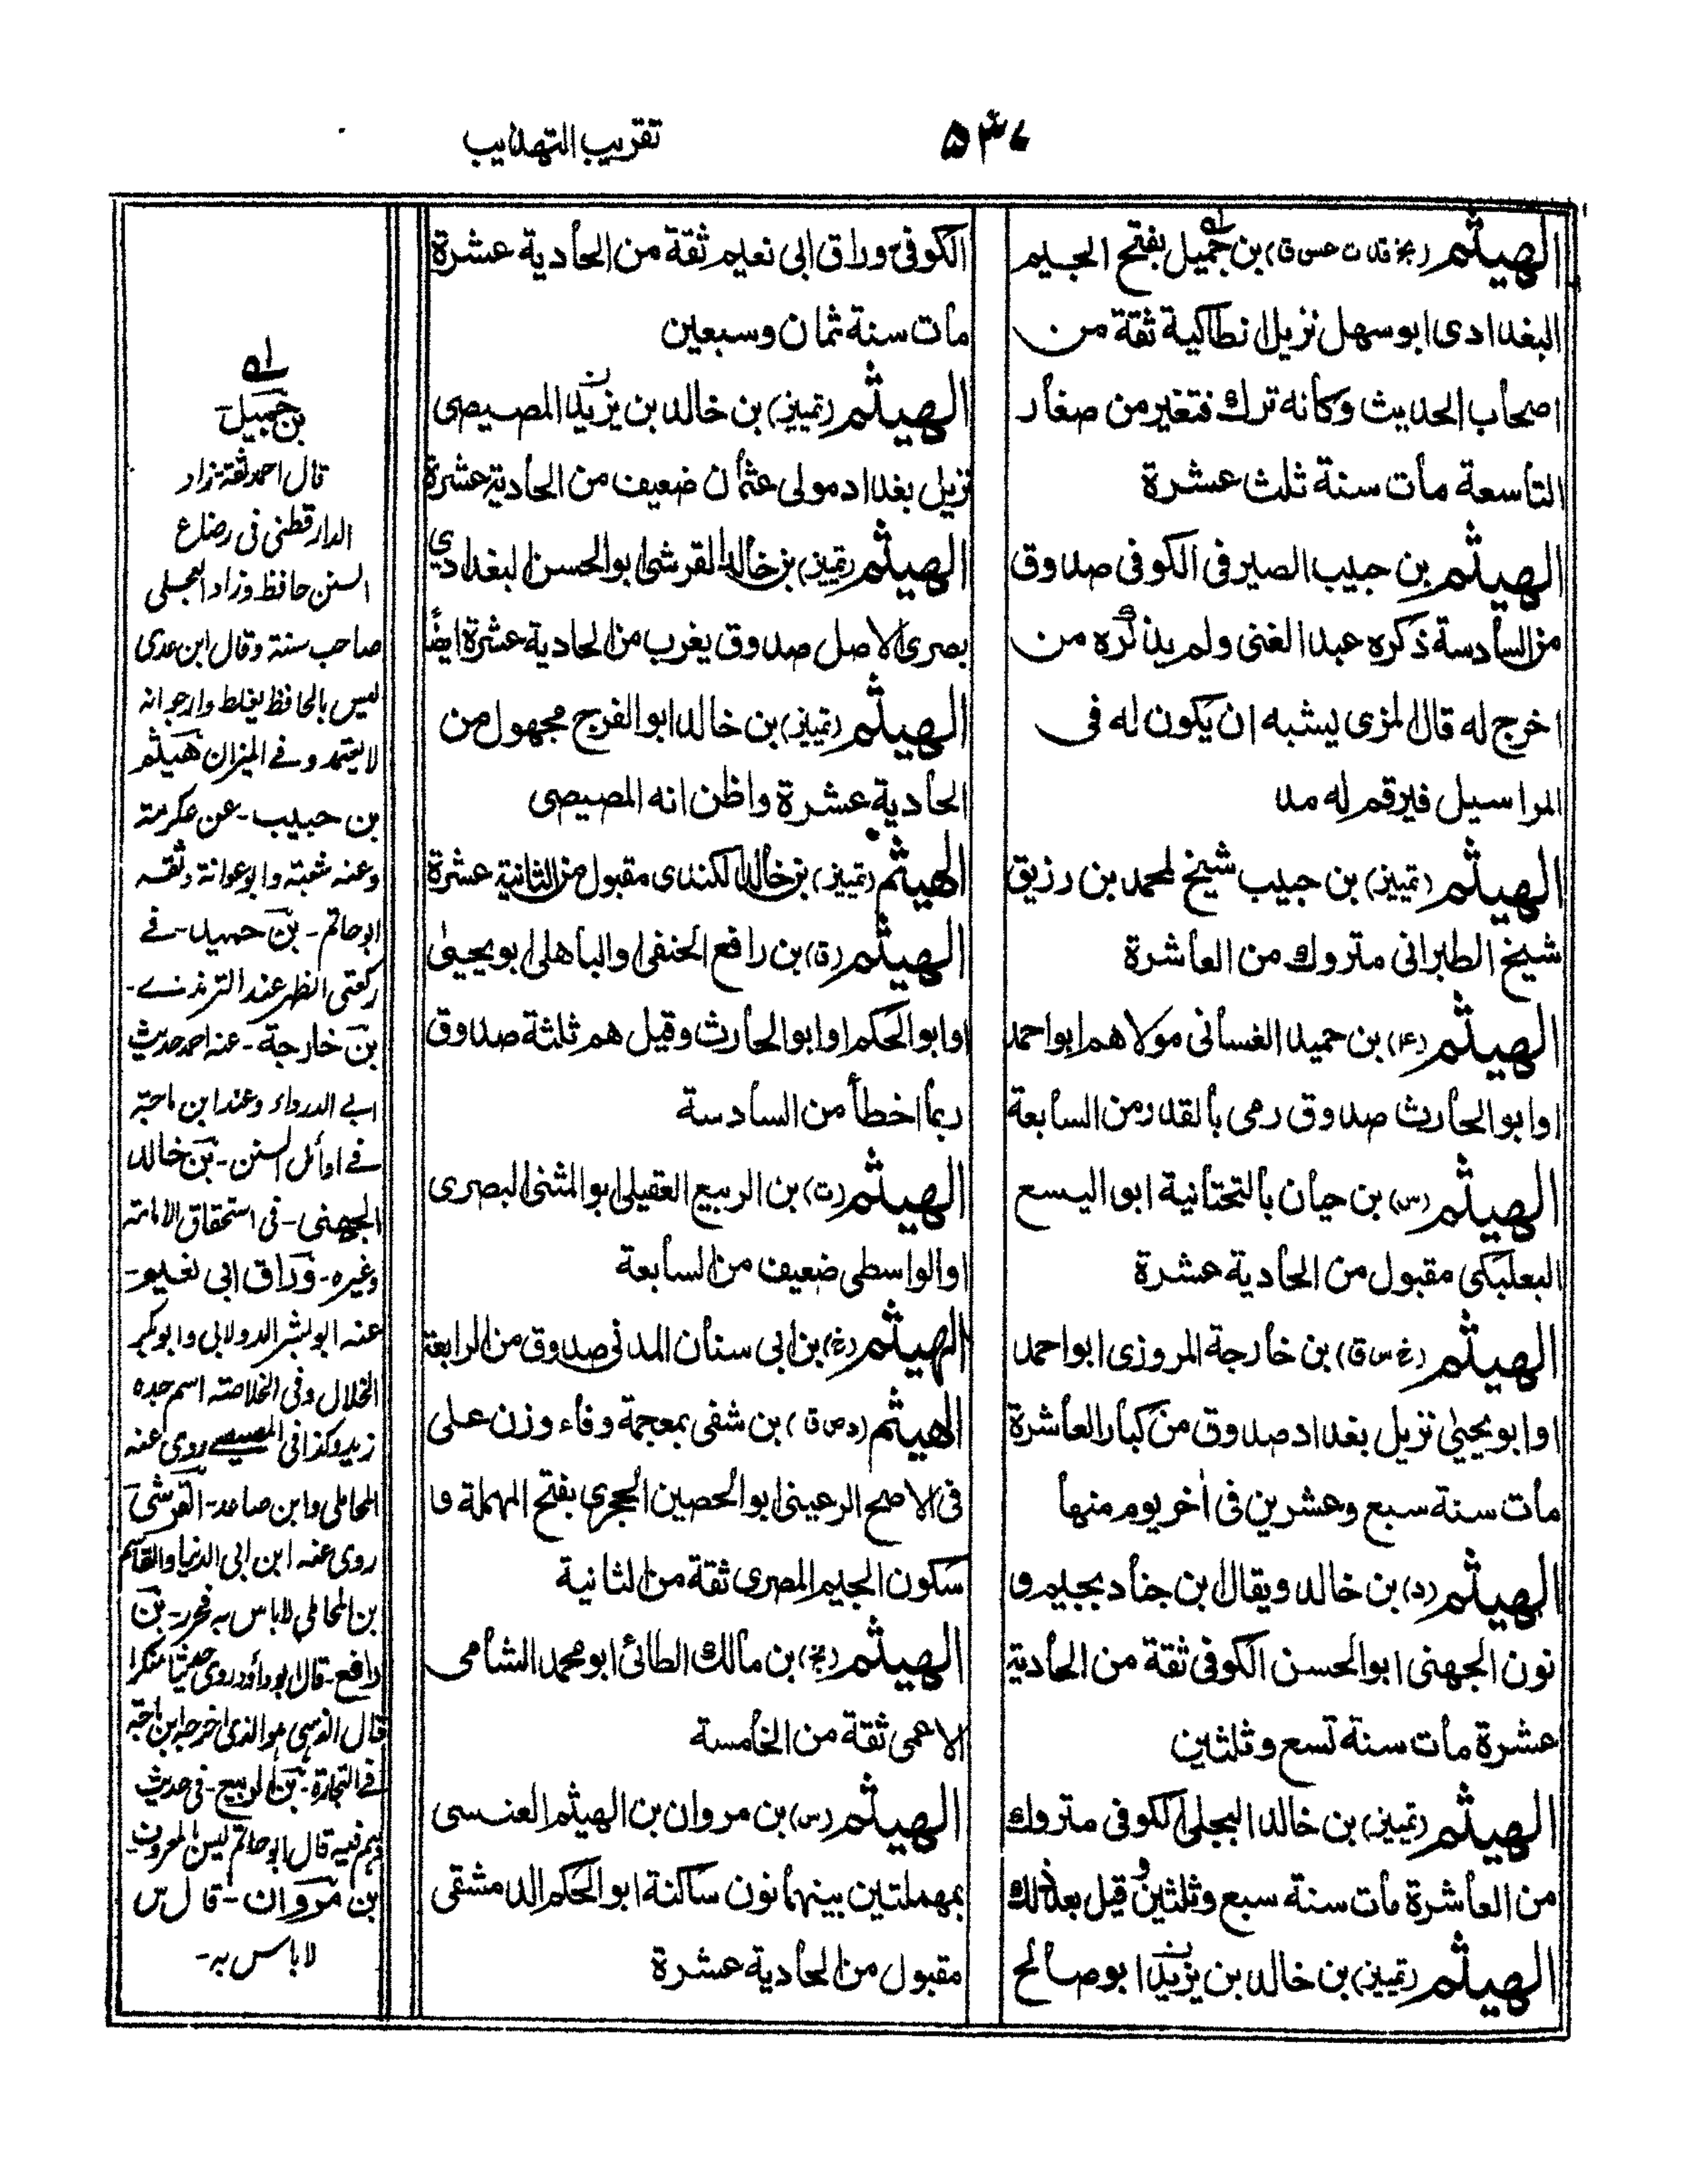 تقريب التهذيب
۵۳۷
الهيثم (بخ قد ت عس ق) بن جميل بفتح الجيم
البغدادى ابو سهل نزيل انطاكية ثقة من
اصحاب الحديث وكانه ترك فتغير من صغار
التاسعة مات سنة ثلث عشرة
الهيثم بن حبيب الصيرفى الكوفى صدوق
من السادسة ذكره عبد الغنى ولم يذكره من
اخرج له قال المزى يشبه ان يكون له فى
المراسيل فيرقم له مد
الهيثم (تمييز) بن حبيب شيخ لمحمد بن رزيق
شيخ الطبرانى متروك من العاشرة
الهيثم (عم) بن حميد الغسانى مولاهم ابو احمد
او ابو الحارث صدوق رمى بالقدر من السابعة
الهيثم (س) بن حيان بالتحتانية ابو اليسع
البعلبكى مقبول من الحادية عشرة
الهيثم (خ س ق) بن خارجة المروزى ابو احمد
او ابو يحيى نزيل بغداد صدوق من كبار العاشرة
مات سنة سبع وعشرين فى اخر يوم منها
الهيثم (د) بن خالد ويقال بن جناد بجيم و
نون الجهنى ابو الحسن الكوفى ثقة من الحادية
عشرة مات سنة تسع وثلثين
الهيثم (تمييز) بن خالد البجلى الكوفى متروك
من العاشرة مات سنة سبع وثلثين و قيل بعد ذلك
الهيثم (تمييز) بن خالد بن يزيد ابو صالح
الكوفى وراق ابى نعيم ثقة من الحادية عشرة
مات سنة ثمان وسبعين
الهيثم (تمييز) بن خالد بن يزيد المصيصى
نزيل بغداد مولى عثمان ضعيف من الحادية عشرة
الهيثم (تمييز) بن خالد القرشى ابو الحسن البغدادى
بصرى الاصل صدوق يغرب من الحادية عشرة ايضا
الهيثم (تمييز) بن خالد ابو الفرج مجهول من
الحادية عشرة واظن انه المصيصى
الهيثم (تمييز) بن خالد الكندى مقبول من الثانية عشرة
الهيثم (ق) بن رافع الحنفى او الباهلى ابو يحيى
او ابو الحكم او ابو الحارث وقيل هم ثلثة صدوق
ربما اخطأ من السادسة
الهيثم (ت) بن الربيع العقيلى ابو المثنى البصرى
او الواسطى ضعيف من السابعة
الهيثم (خ) بن ابى سنان المدنى صدوق من الرابعة
الهيثم (د س ق) بن شفى بمعجمة وفاء وزن على
فى الاصح الرعينى ابو الحصين الحجرى بفتح المهملة و
سكون الجيم المصرى ثقة من الثانية
الهيثم (بخ) بن مالك الطائى ابو محمد الشامى
الاعمى ثقة من الخامسة
الهيثم (س) بن مروان بن الهيثم العنسى
بمهملتين بينهما نون ساكنة ابو الحكم الدمشقى
مقبول من الحادية عشرة
بن جميل
قال احمد ثقة زاد
الدارقطنى فى رضاع
السنن حافظ وزاد العجلى
صاحب سنة وقال ابن عدى
ليس بالحافظ يغلط وارجو انه
لا يتعمد وفے الميزان هيثم
بن حبيب - عن عكرمة
وعنه شعبة وابو عوانة وثقه
ابو حاتم - بن حميد - فے
ركعتى الظهر عند الترمذے -
بن خارجة - عنه احمد حديث
ابے الدرداء وعند ابن ماجة
فے اوائل السنن - بن خالد
الجهنى - فى استحقاق الامامة
وغيره - وراق ابى نعيم -
عنه ابو بشر الدولابى وابو بكر
الخلال وفى الخلاصة اسم جده
زيد وكذا فى المصيصے روى عنه
المحاملى وابن صاعد - القرشى
روى عنه ابن ابى الدنيا والقاسم
بن المحاملى لا باس به فحرر - بن
رافع - قال ابو داؤد روى حديثا منكرا
قال الذهبى هو الذى اخرجه ابن ماجة
فے التجارة - بن الربيع - فى حديث
فيه قال ابو حاتم ليس بالمعروف
بن مروان - قال س
لا باس به -